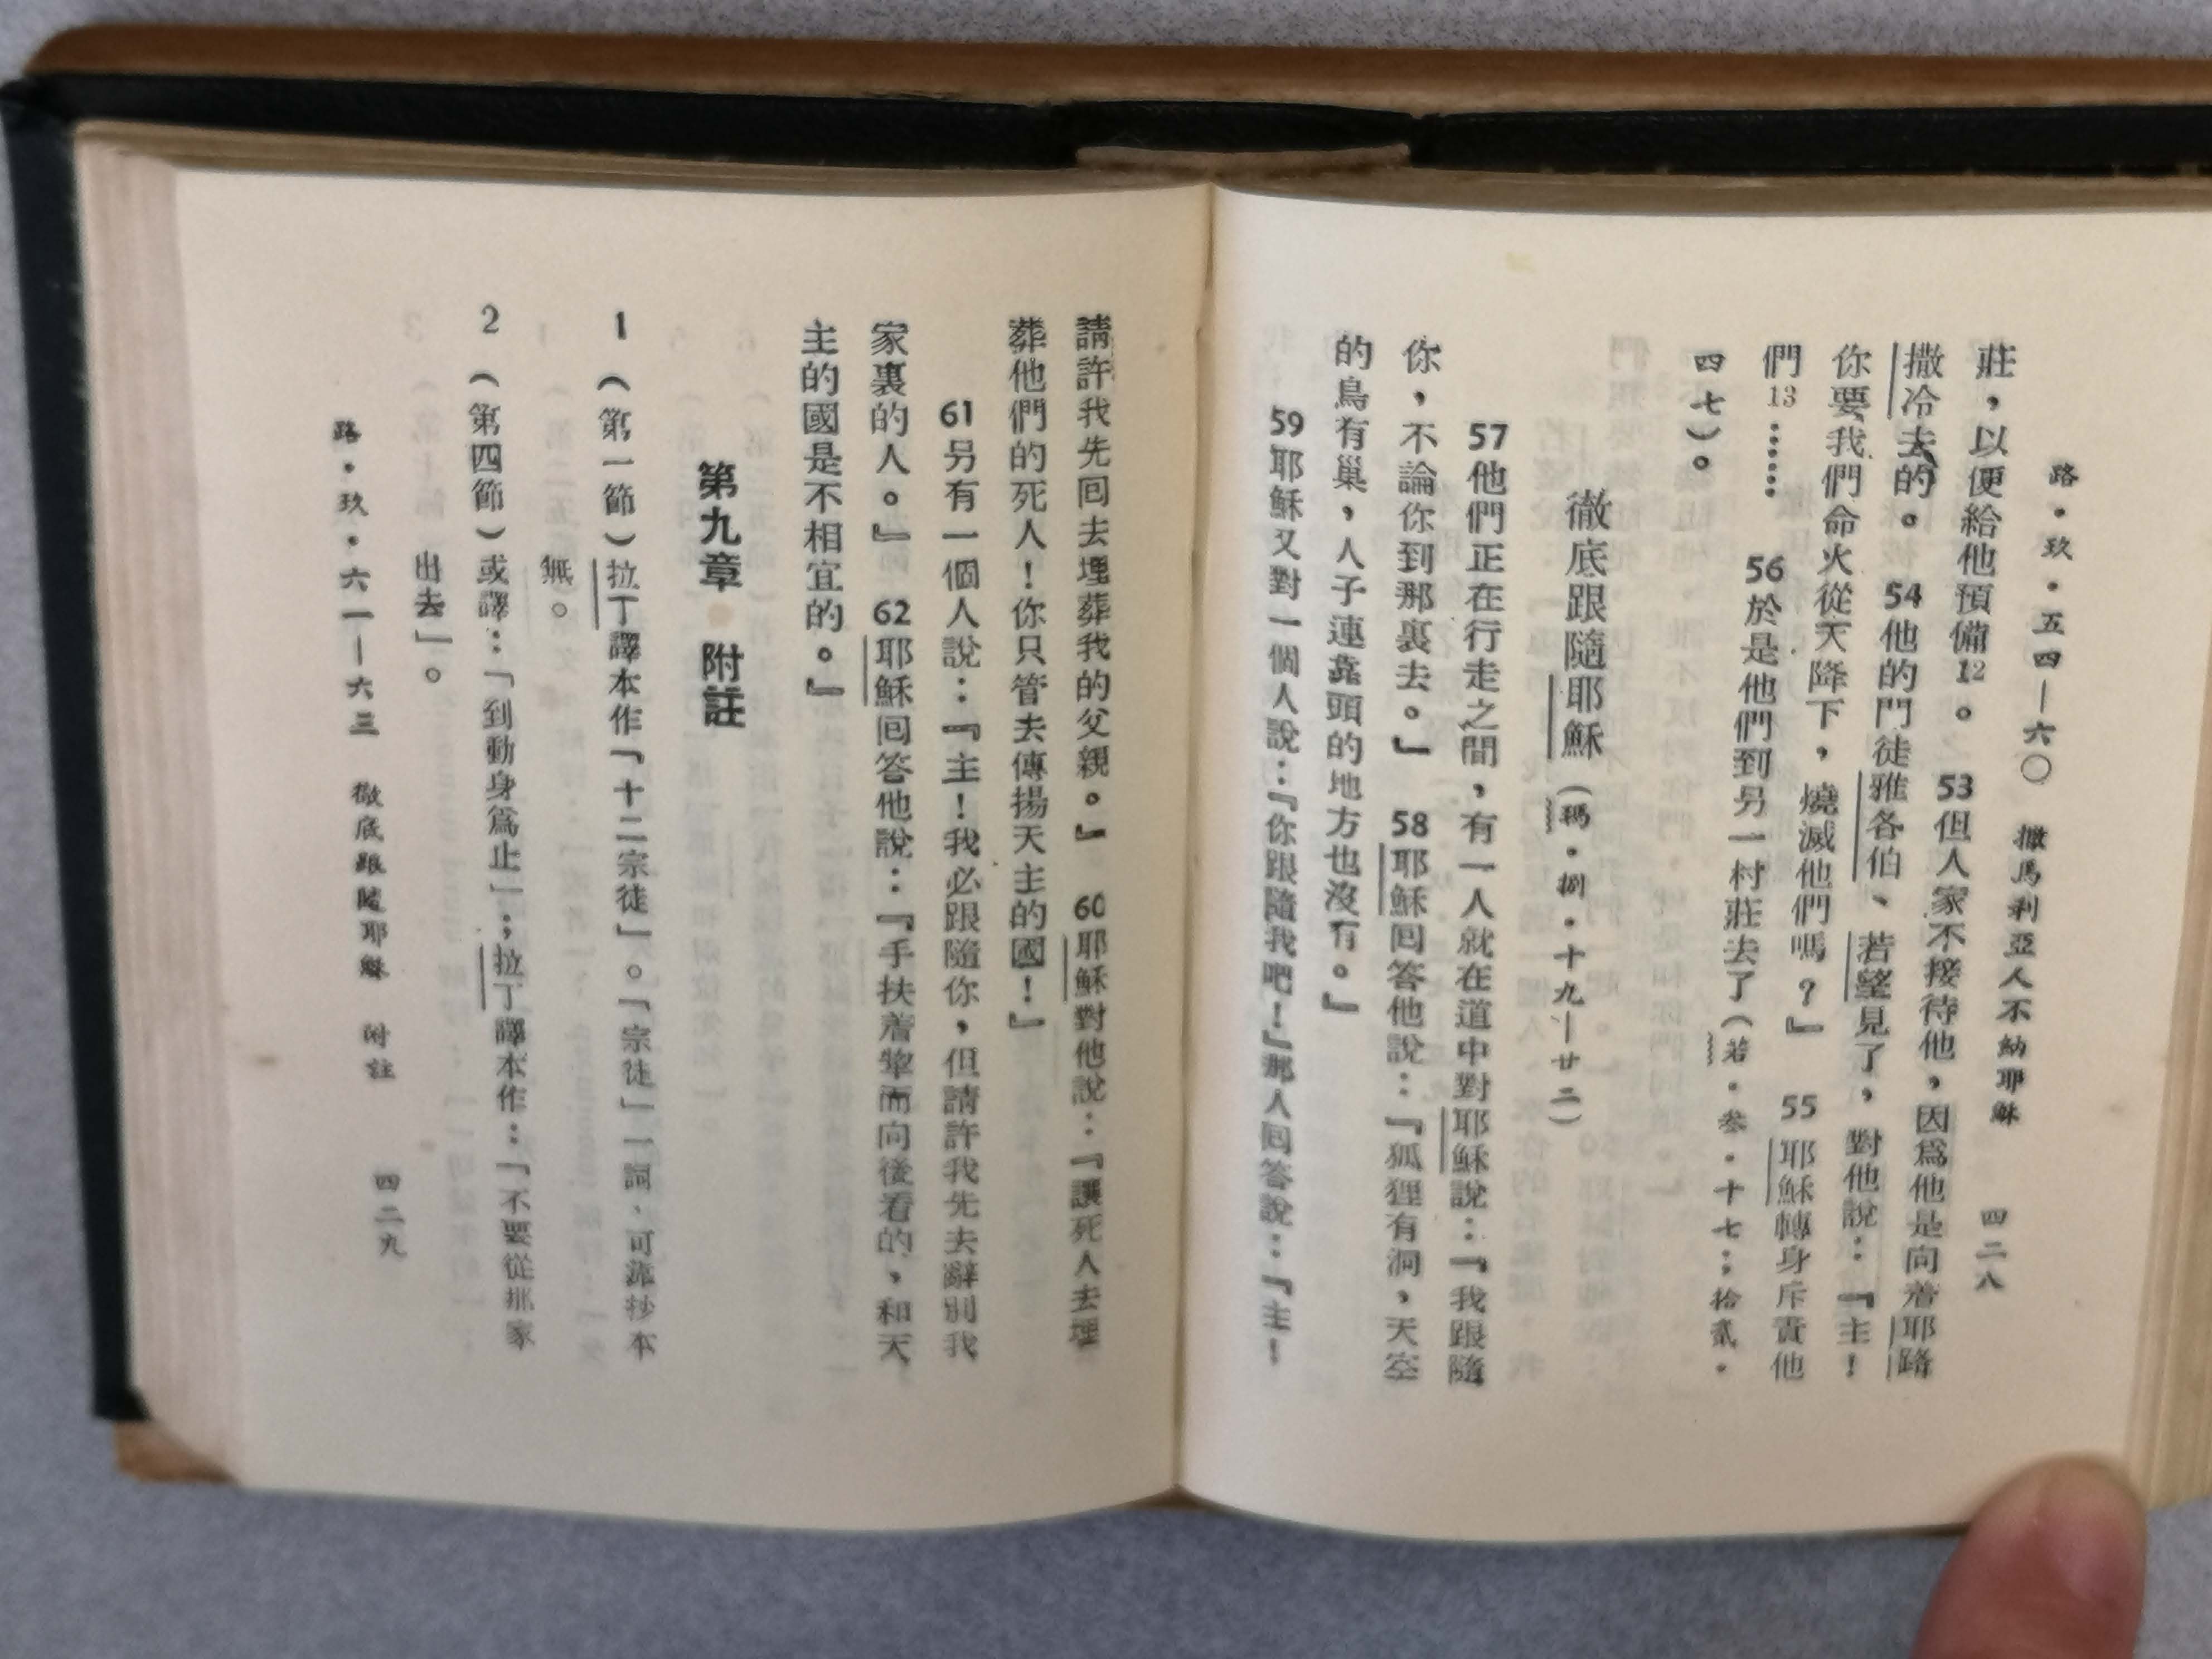 路・玖・五四—六〇　撒馬利亞人不納耶穌　四二八
莊，以便給他預備12。　53但人家不接待他，因爲他是向着耶路
撒冷去的。　54他的門徒雅各伯、若望見了，對他說：『主！
你要我們命火從天降下，燒滅他們嗎？』　55耶穌轉身斥責他
們13……　56於是他們到另一村莊去了（若・叁・十七；拾貳・
四七）。
徹底跟隨耶穌（瑪・捌・十九—廿二）
57他們正在行走之間，有一人就在道中對耶穌說：『我跟隨
你，不論你到那裏去。』　58耶穌囘答他說：『狐狸有洞，天空
的鳥有巢，人子連靠頭的地方也沒有。』
59耶穌又對一個人說：『你跟隨我吧！』那人囘答說：『主！
請許我先囘去埋葬我的父親。』　60耶穌對他說：『讓死人去埋
葬他們的死人！你只管去傳揚天主的國！』
61另有一個人說：『主！我必跟隨你，但請許我先去辭別我
家裏的人。』　62耶穌囘答他說：『手扶着犂而向後看的，和天
主的國是不相宜的。』
第九章　附註
1　（第一節）拉丁譯本作「十二宗徒」。「宗徒」一詞，可靠抄本
無。
2　（第四節）或譯：「到動身爲止」；拉丁譯本作：「不要從那家
出去」。
路・玖・六一—六三　徹底跟隨耶穌　附註　四二九